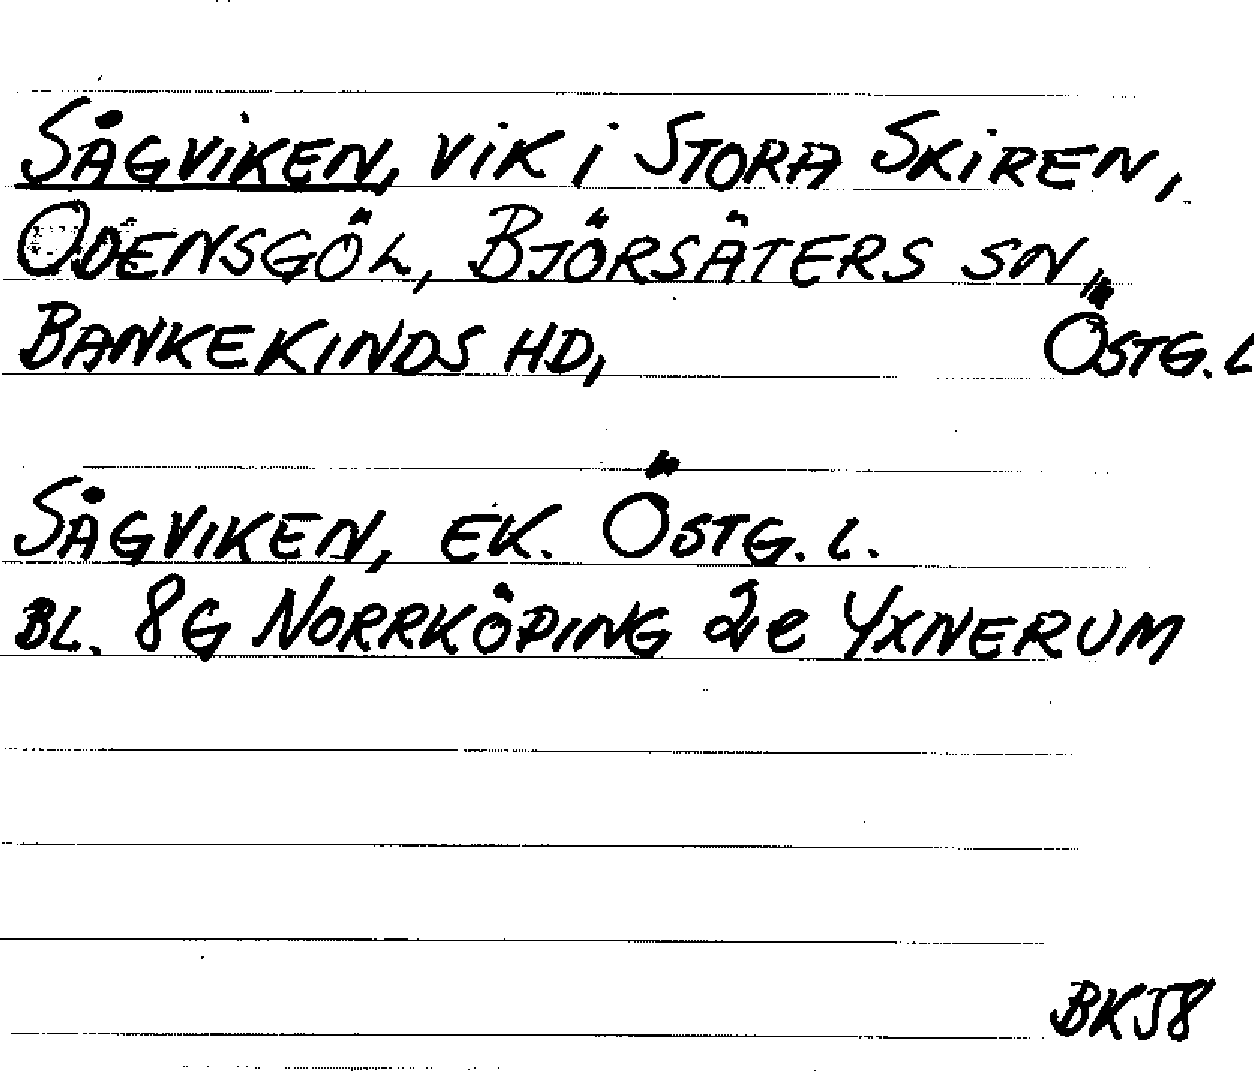 SÅGVIKEN, VIK I STORA SKIREN,
ODENSGÖL, BJÖRSÄTERS SN,
BANKEKINDS HD, ÖSTG. L
SÅGVIKEN, EK. ÖSTG. L.
BL. 8G NORRKÖPING 2e YXNERUM
BK58